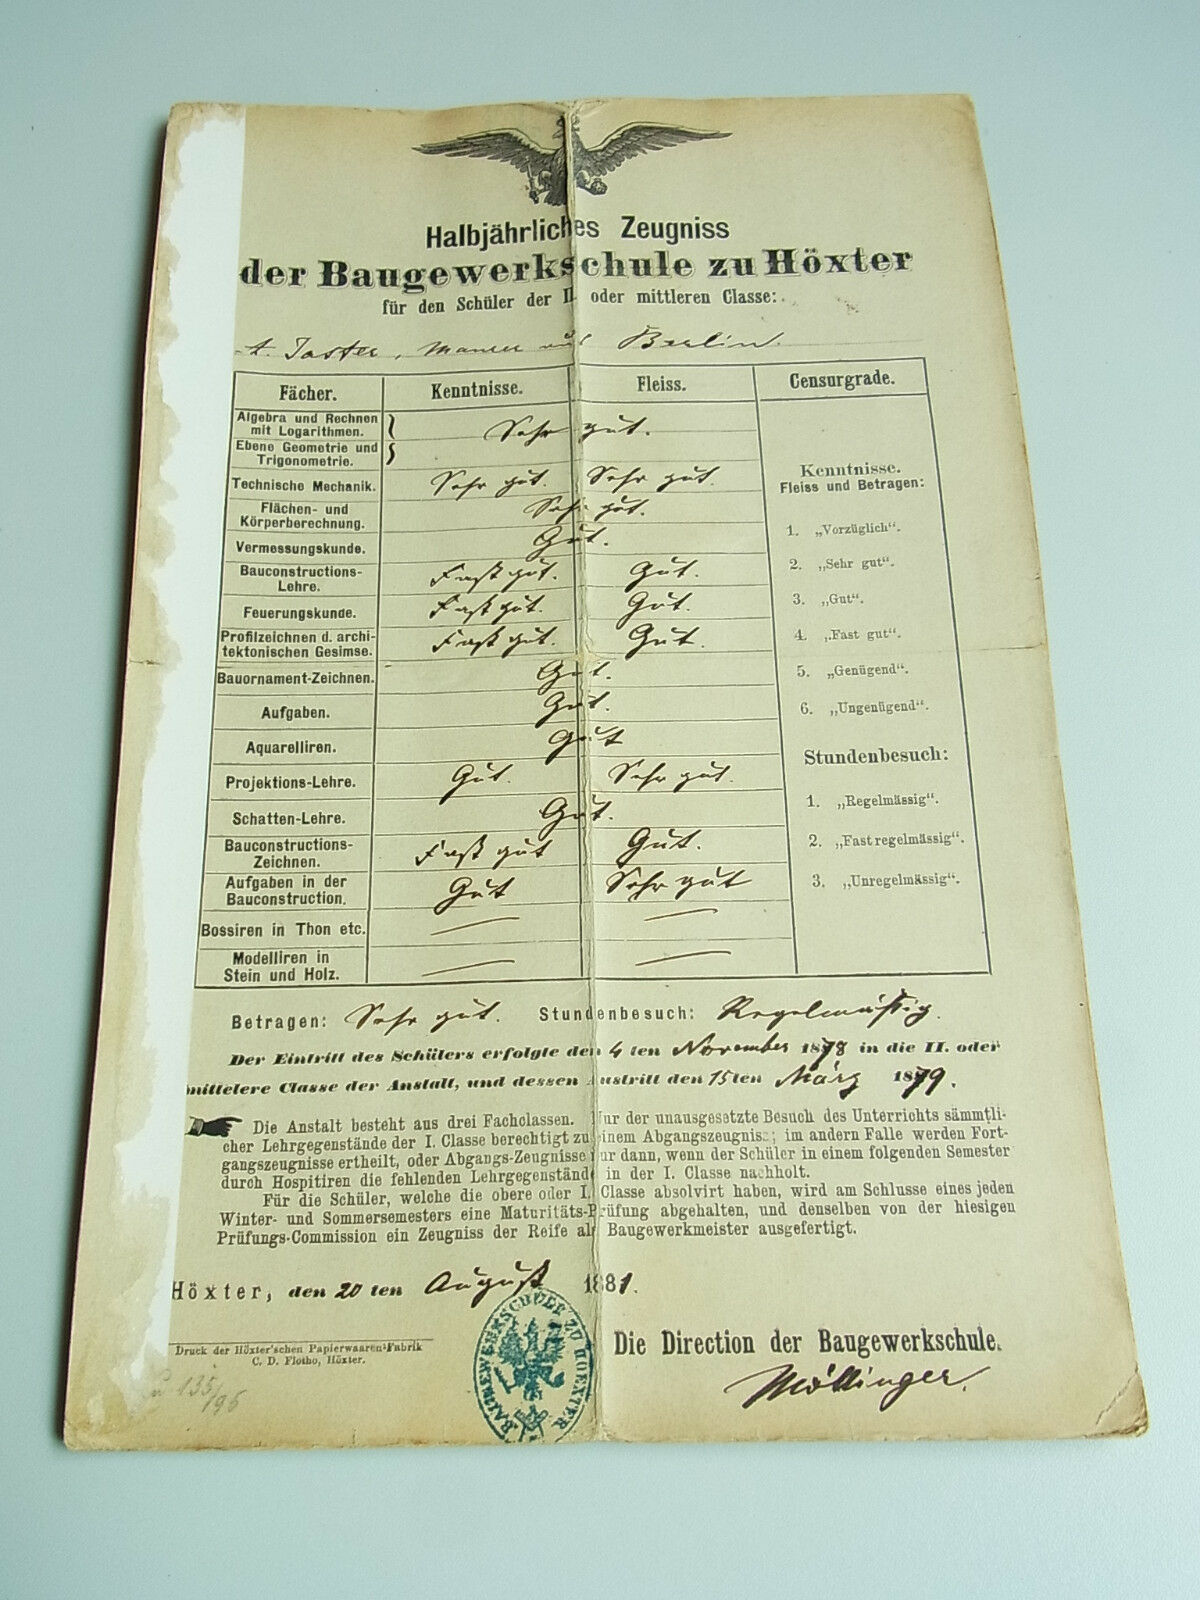 Halbjährliches Zeugniss
der Baugewerkschule zu Höxter
für den Schüler der II. oder mittleren Classe:
A. Taster, Maurer aus Berlin.
Fächer. Kenntnisse. Fleiss. Censurgrade.
Algebra und Rechnen
mit Logarithmen.
Ebene Geometrie und
Trigonometrie.
Sehr gut.
Technische Mechanik. Sehr gut. Sehr gut.
Flächen- und
Körperberechnung. Sehr gut.
Vermessungskunde. Gut.
Bauconstructions-
Lehre. Fast gut. Gut.
Feuerungskunde. Fast gut. Gut.
Profilzeichnen d. archi-
tektonischen Gesimse. Fast gut. Gut.
Bauornament-Zeichnen. Gut.
Aufgaben. Gut.
Aquarelliren. Gut
Projektions-Lehre. Gut. Sehr gut.
Schatten-Lehre. Gut.
Bauconstructions-
Zeichnen. Fast gut Gut.
Aufgaben in der
Bauconstruction. Gut Sehr gut
Bossiren in Thon etc. — —
Modelliren in
Stein und Holz. — —
Kenntnisse.
Fleiss und Betragen:
1. „Vorzüglich“.
2. „Sehr gut“.
3. „Gut“.
4. „Fast gut“.
5. „Genügend“.
6. „Ungenügend“.
Stundenbesuch:
1. „Regelmässig“.
2. „Fast regelmässig“.
3. „Unregelmässig“.
Betragen: Sehr gut. Stundenbesuch: Regelmäßig.
Der Eintritt des Schülers erfolgte den 4 ten November 1878 in die II. oder
mittelere Classe der Anstalt, und dessen Austritt den 15ten März 1879.
Die Anstalt besteht aus drei Fachclassen. Nur der unausgesetzte Besuch des Unterrichts sämmtli-
cher Lehrgegenstände der I. Classe berechtigt zu einem Abgangszeugniss; im andern Falle werden Fort-
gangszeugnisse ertheilt, oder Abgangs-Zeugnisse nur dann, wenn der Schüler in einem folgenden Semester
durch Hospitiren die fehlenden Lehrgegenstände in der I. Classe nachholt.
Für die Schüler, welche die obere oder I. Classe absolvirt haben, wird am Schlusse eines jeden
Winter- und Sommersemesters eine Maturitäts-Prüfung abgehalten, und denselben von der hiesigen
Prüfungs-Commission ein Zeugniss der Reife als Baugewerkmeister ausgefertigt.
Höxter, den 20 ten August 1881.
BAUGEWERKSCHULE ZU HOEXTER
Die Direction der Baugewerkschule.
Möllinger.
Druck der Höxter'schen Papierwaaren-Fabrik
C. D. Flotho, Höxter.
135/196